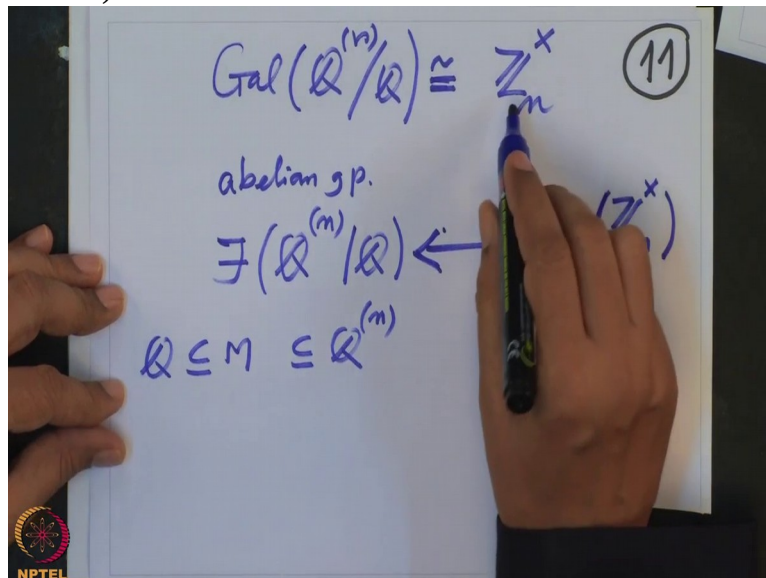 Gal(ℚ⁽ⁿ⁾/ℚ) ≅ ℤₙˣ
11
abelian gp.
∃(ℚ⁽ⁿ⁾/ℚ) ← (ℤ ˣ)
ℚ ⊆ M ⊆ ℚ⁽ⁿ⁾
NPTEL